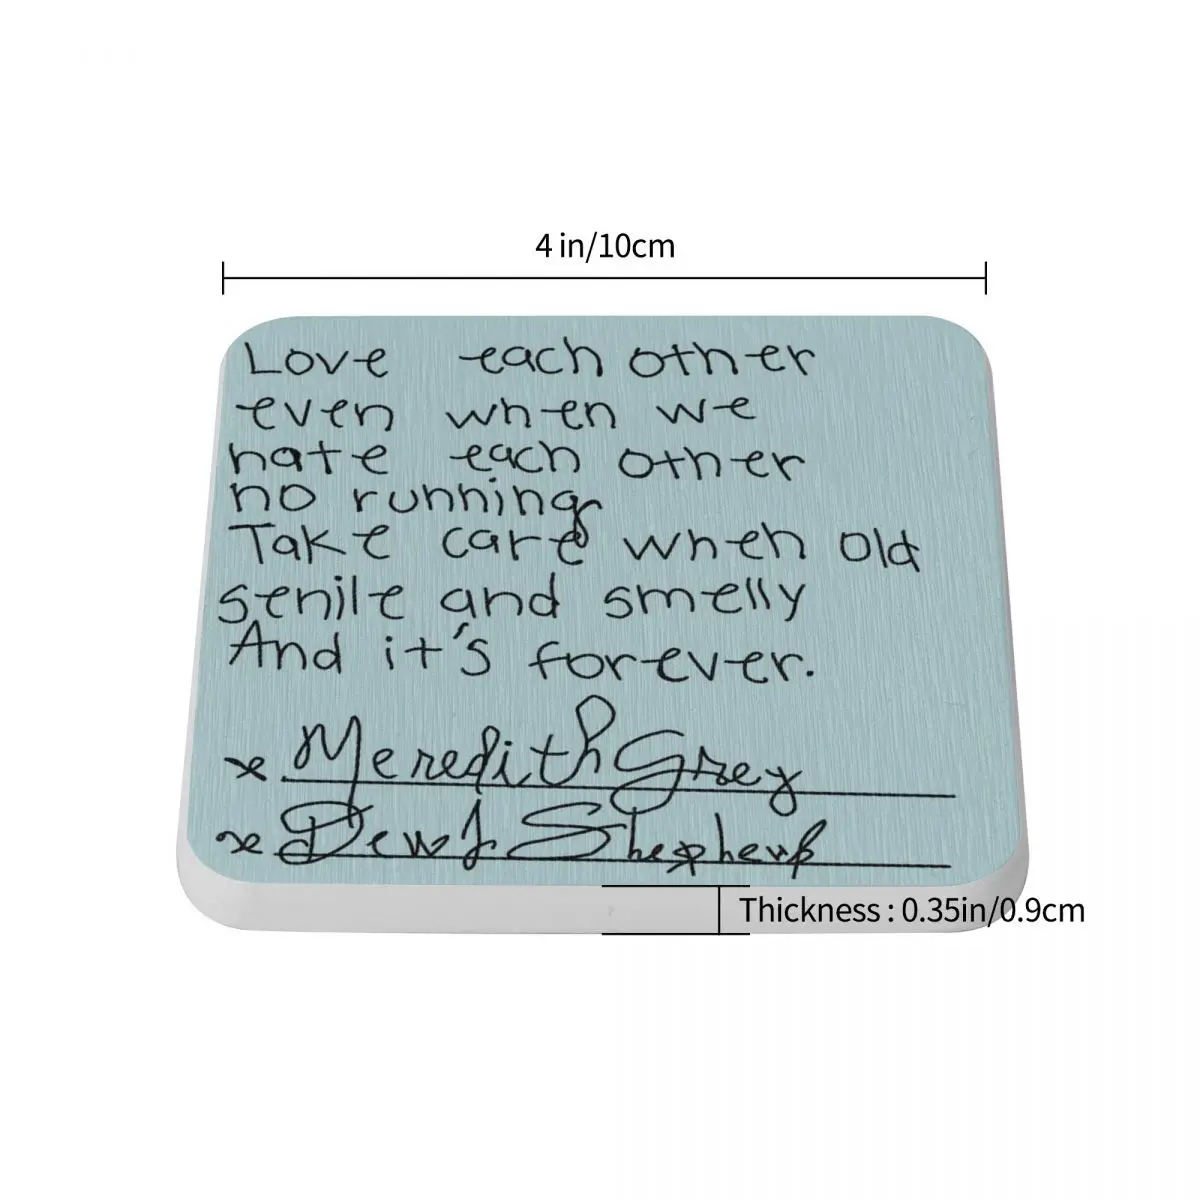 4 in/10cm
Love each other
even when we
hate each other
no running
Take care when old
senile and smelly
And it's forever.
x Meredith Grey
x Shepherd
Thickness : 0.35in/0.9cm